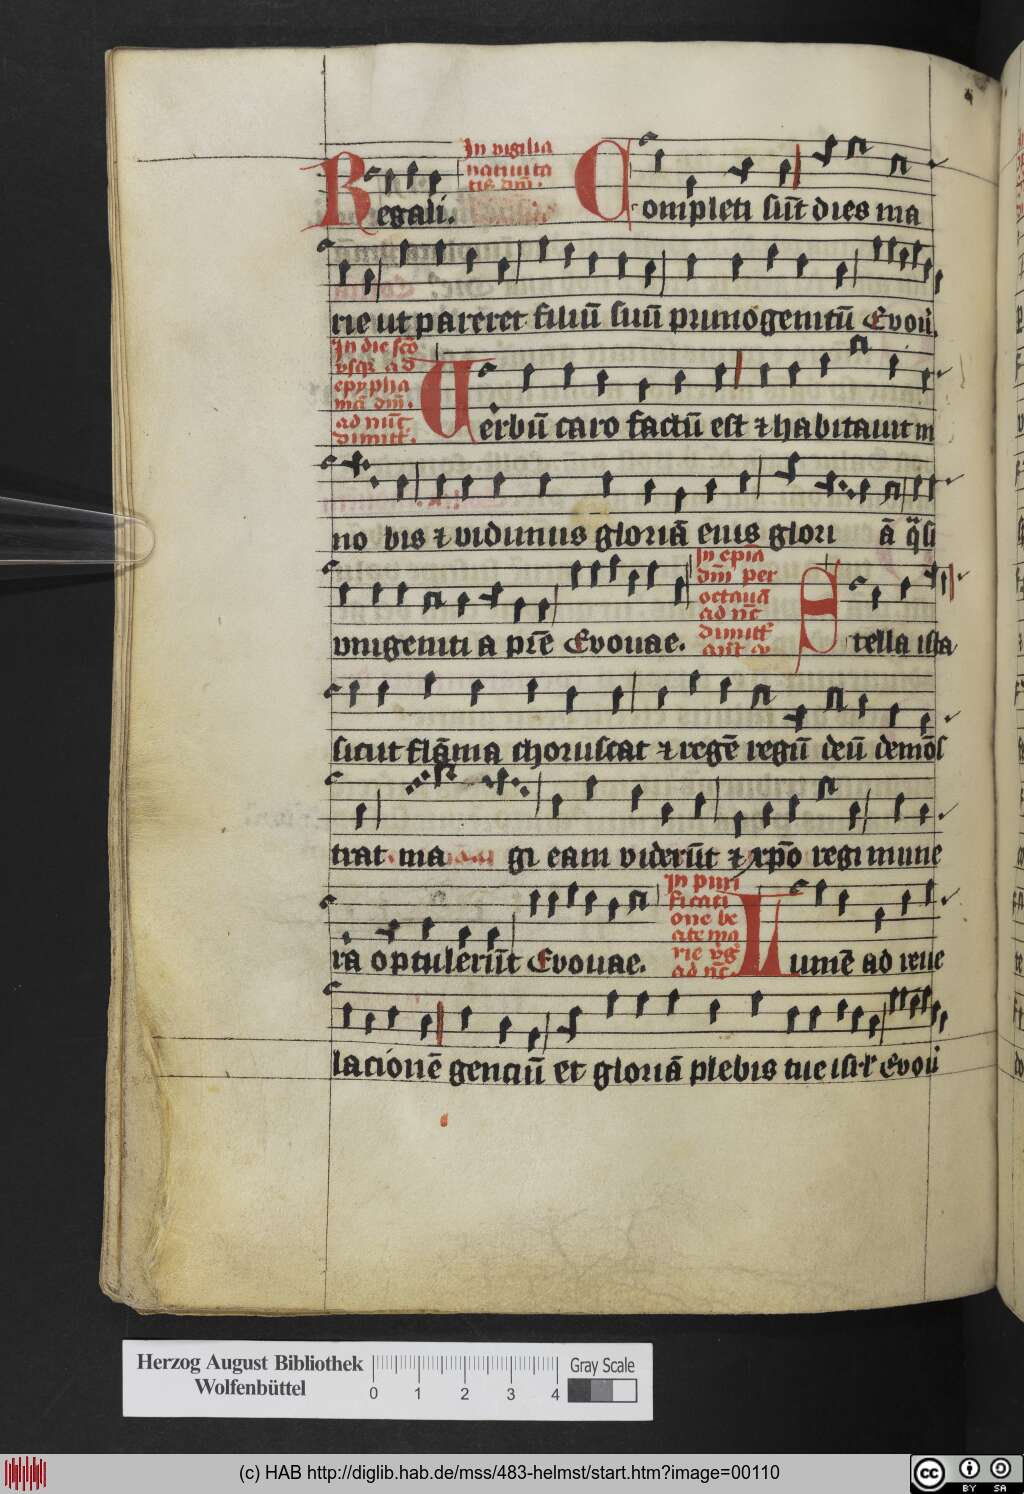 In vigilia
natiuita
tis dm̄.
Regali. Completi sūt dies ma
rie ut pareret filiū suū primogenitū Evoū.
In die scō
vsqꝫ ad
epypha
niā dm̄.
ad nūc
dimitt̄.
Uerbū caro factū est ⁊ habitauit in
no bis ⁊ vidimus gloriā eius glori ā q̄si
vnigeniti a prē Evouae.
In epia
dm̄ per
octauā
ad nc̄
dimitt̄
Stella ista
sicut flāma choruscat ⁊ regē regū deū demōs
trat ma gi eam viderūt ⁊ xp̄o regi mune
ra optulerūt Evouae.
In puri
ficati
one be
ate ma
rie v̄g
ad nc̄.
Lumē ad reue
lacionē genciū et gloriā plebis tue isrl̄ Evoū
Herzog August Bibliothek
Wolfenbüttel
0 1 2 3 4
Gray Scale
(c) HAB http://diglib.hab.de/mss/483-helmst/start.htm?image=00110
cc BY SA